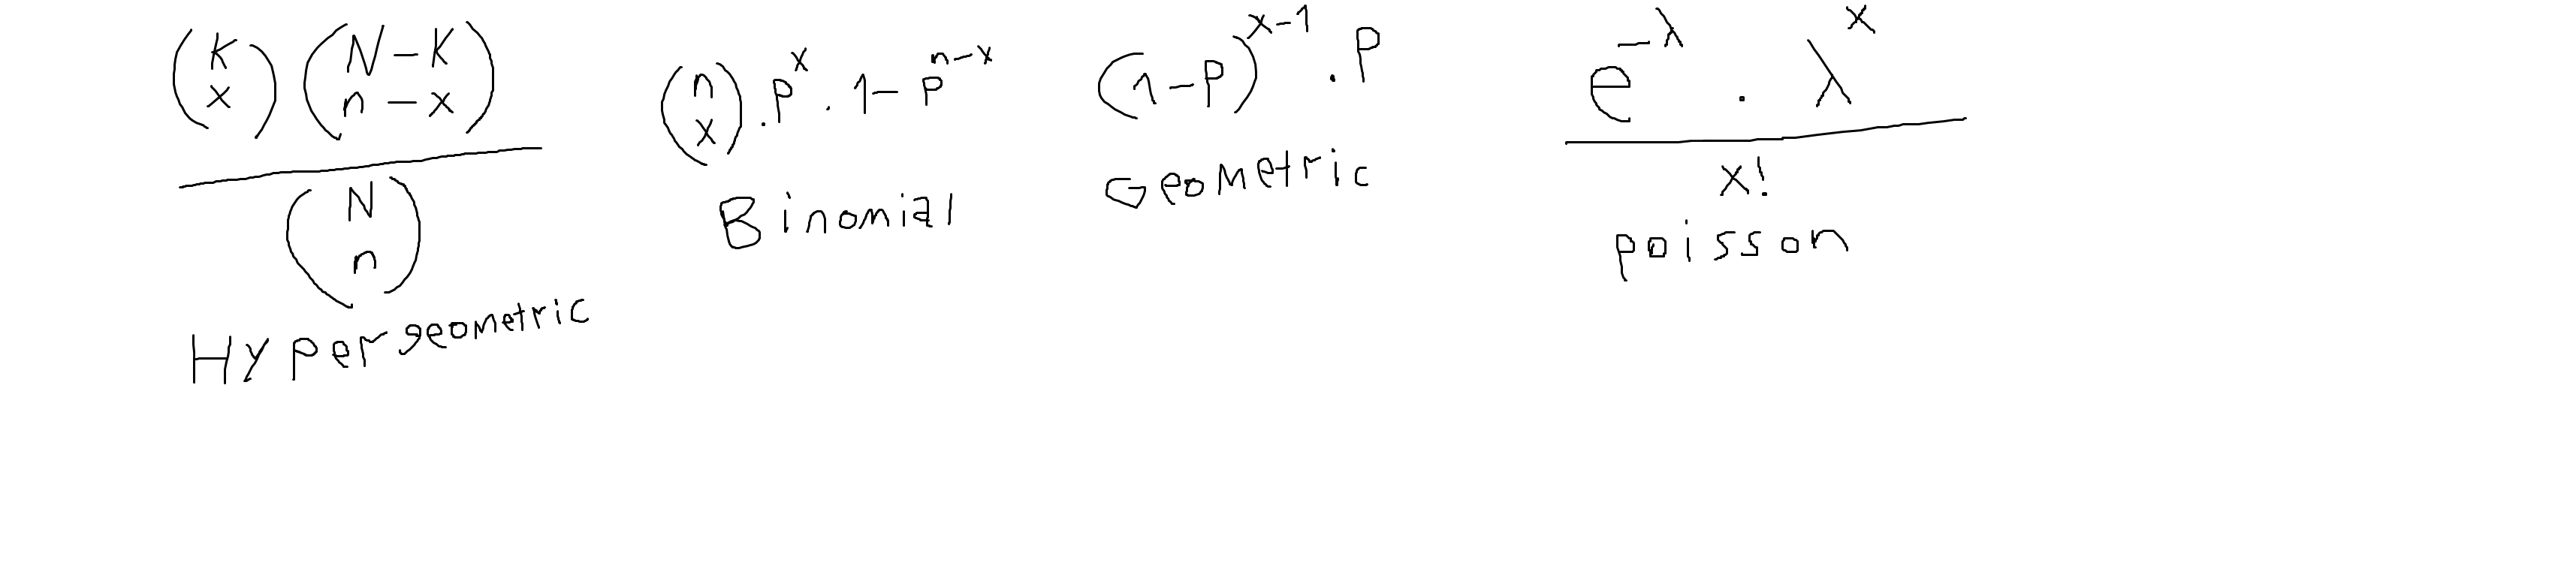 (K x) (N-K n-x) / (N n)
Hypergeometric
(n x) . p^x . 1-p^n-x
Binomial
(1-P)^x-1 . P
Geometric
e^-λ . λ^x / x!
poisson